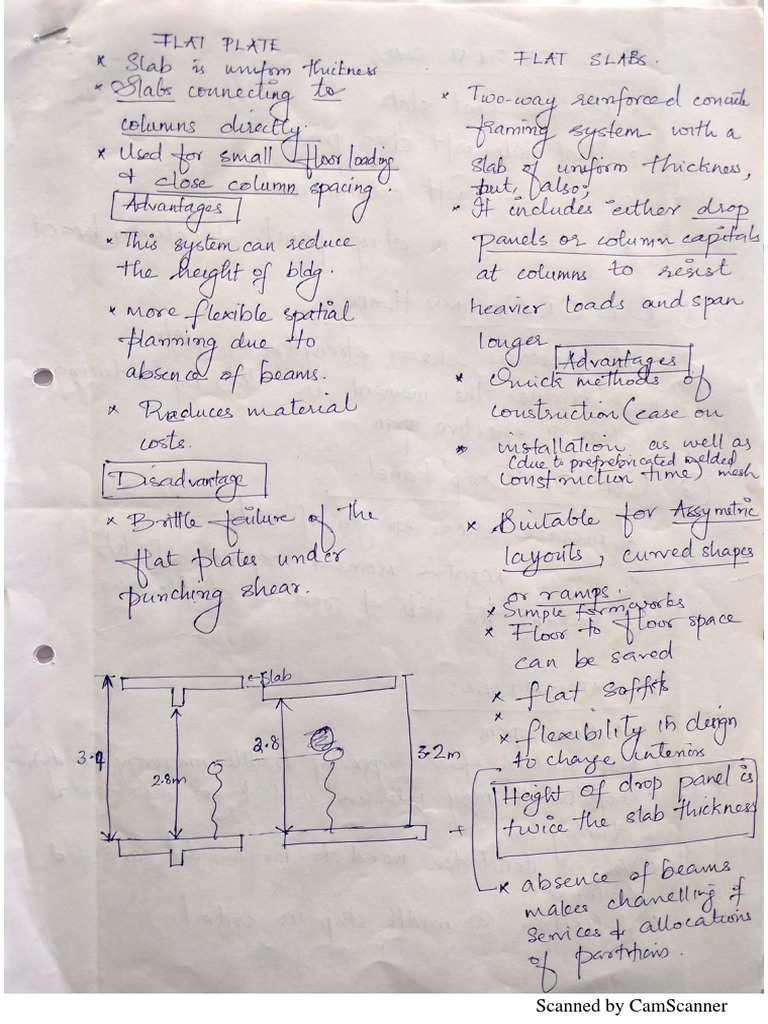 FLAT PLATE
* Slab is uniform thickness
* Slabs connecting to
columns directly.
* Used for small floor loading
& close column spacing.
Advantages
* This system can reduce
the height of bldg.
* more flexible spatial
planning due to
absence of beams.
* Reduces material
costs.
Disadvantage
* Brittle failure of the
flat plates under
punching shear.
←Slab
3.4
2.8m
2.8
3.2m
FLAT SLABS.
* Two-way reinforced concrete
framing system with a
slab of uniform thickness,
but, also;
* It includes either drop
panels or column capitals
at columns to resist
heavier loads and span
longer
Advantages
* Quick methods of
construction (ease on
* installation as well as
(due to prefebricated welded
construction time) mesh
* Suitable for Assymetric
layouts, curved shapes
or ramps.
* Simple formworks
* Floor to floor space
can be saved
* flat soffits
*
* flexibility in design
to change interiors
Height of drop panel is
twice the slab thickness
+
* absence of beams
makes chanelling of
services & allocations
of partitions.
Scanned by CamScanner